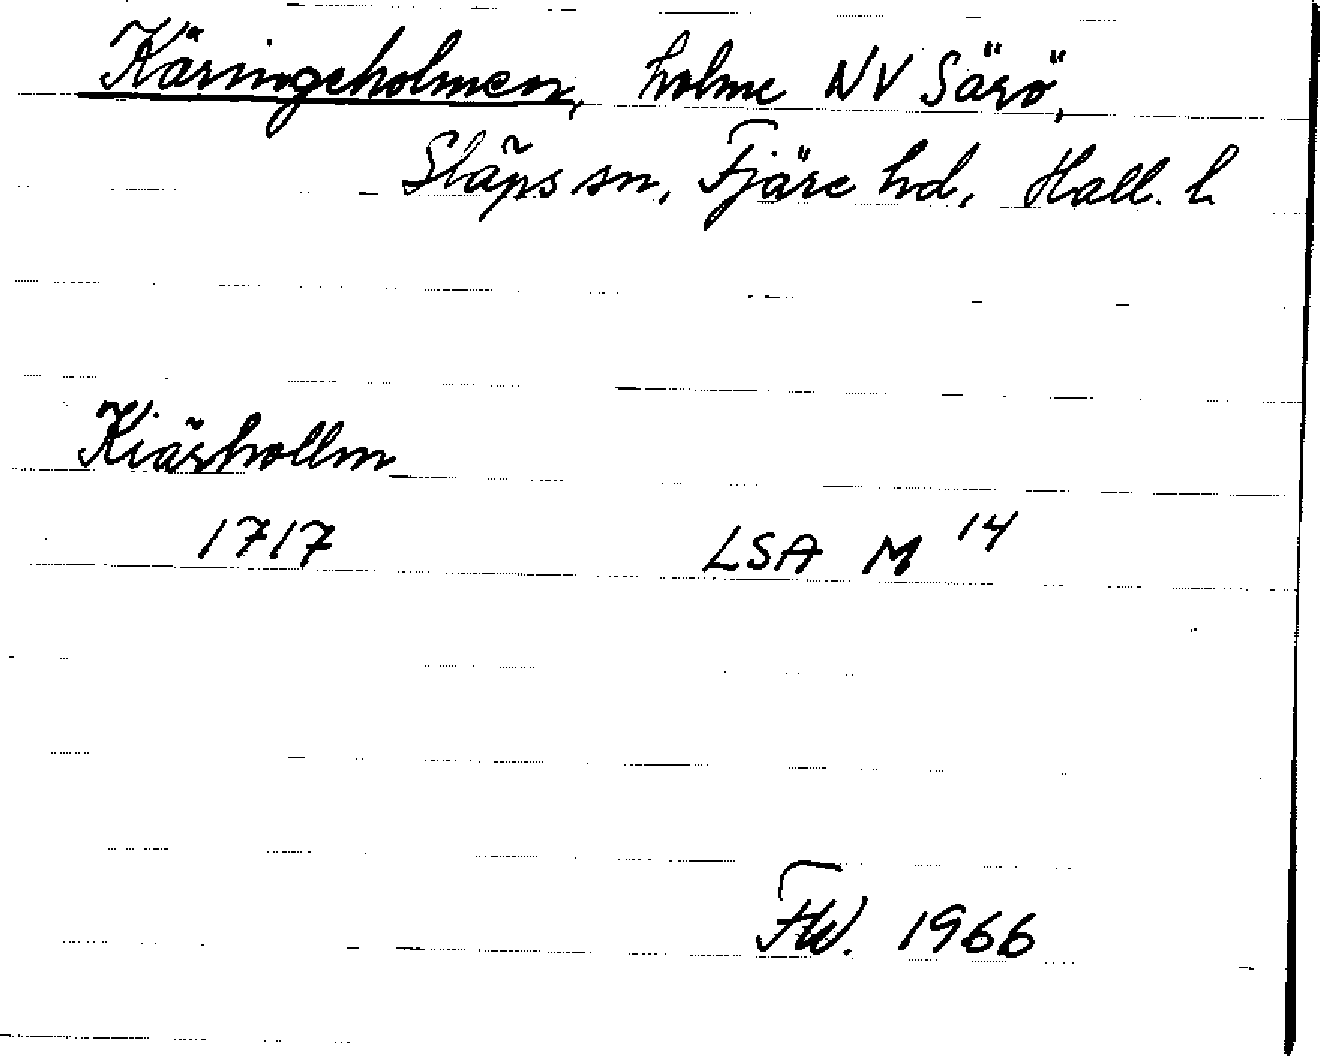 Käringeholmen, holme NV Särö,
Släps sn, Fjäre hd, Hall. l.
Kiärhollm
1717 LSA M 14
FW. 1966